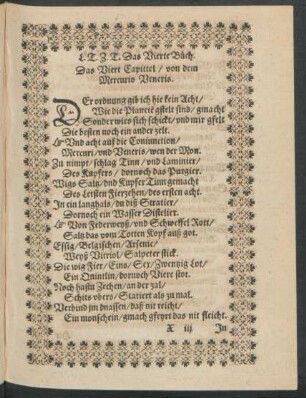 L. T. Z. T. Das Vierte Bůch.
Das Viert Capittel / von dem
Mercurio Veneris.
DEr ordnung gib ich hie kein Acht /
Wie die Planetē gstelt sind / gmacht
Sonder wies sich schickt / vnd mir gfelt
Die besten noch ein ander zelt.
Vnd acht auff die Coniunction /
Mercuri / vnd Veneris / wen der Mon.
Zu nimpt / schlag Tinn / vnd Laminier /
Des Kupfers / dornoch das Purgier.
Wigs Saltz / vnd Kupfer Tinn gemacht
Des Letsten Fierzehen / des ersten acht.
In ein langhals / dn diß Stratier /
Dornoch ein Wasser Distelier.
Von Federweyß / vnd Schweffel Rott /
Saltz das vom Totten Kopf auß got.
Essig / Belgischen / Arsenic /
Weyß Vitriol / Salpeter stick.
Die wig Fier / Eins / Sex / Zwentzig Lot /
Ein Quintlin / dornoch Viere stot.
Noch hastu Zechen / an der zal /
Schits obers / Statiert als zu mal.
Verbind jm dnassen / daß nit reicht /
Ein monschein / gmach gfeyrt das nit fleicht.
X iij In